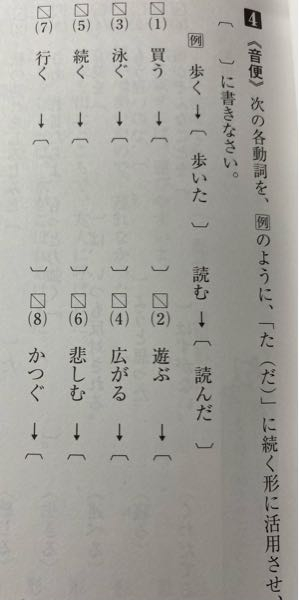 4 《音便》 次の各動詞を、例のように、「た（だ）」に続く形に活用させ、
〔　〕に書きなさい。
例 歩く→〔 歩いた 〕 読む→〔 読んだ 〕
(1) 買う →〔　　〕 (2) 遊ぶ →〔
(3) 泳ぐ →〔　　〕 (4) 広がる →〔
(5) 続く →〔　　〕 (6) 悲しむ →〔
(7) 行く →〔　　〕 (8) かつぐ →〔